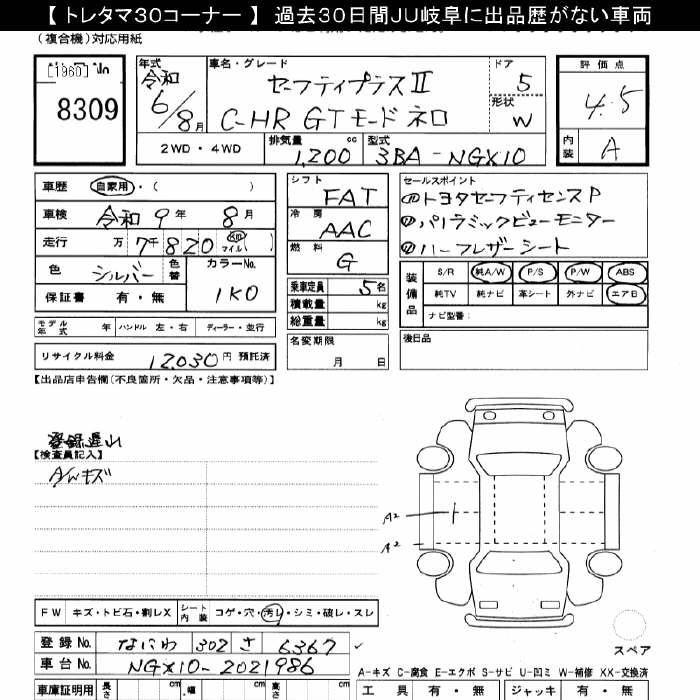 【 トレタマ30コーナー 】 過去30日間JU岐阜に出品歴がない車両
(複合機)対応用紙
[1960] No
8309
年式 令和 6/8月
車名・グレード セーフティプラスⅡ
C-HR GTモードネロ
ドア 5
形状 W
評価点 4.5
内装 A
2WD・4WD
排気量 1,200 cc
型式 3BA-NGX10
車歴 自家用・( )
車検 令和 9年 8月
走行 万 7千 820 km マイル ( )
色 シルバー 色替
カラーNo. 1K0
保証書 有・無
モデル年式 年 ハンドル 左・右 ディーラー・並行
リサイクル料金 12,030円 預託済
シフト FAT
冷房 AAC
燃料 G
乗車定員 5名
積載量 kg
総重量 kg
名変期限 月 日
セールスポイント
①トヨタセーフティセンスP
②パノラミックビューモニター
③ハーフレザーシート
装備品
S/R 純A/W P/S P/W ABS
純TV 純ナビ 革シート 外ナビ エアB
ナビ型番:
後日品
【出品店申告欄(不良箇所・欠品・注意事項等)】
登録遅い
【検査員記入】
A/Wキズ
A2
A2
スペア
FW キズ・トビ石・割レX シート内装 コゲ・穴・汚レ・シミ・破レ・スレ
登録No. なにわ 302 さ 6367
車台No. NGX10-2021986
A-キズ C-腐食 E-エクボ S-サビ U-凹ミ W-補修 XX-交換済
車庫証明用 長さ cm 幅 cm 高さ cm
工具 有・無 ジャッキ 有・無